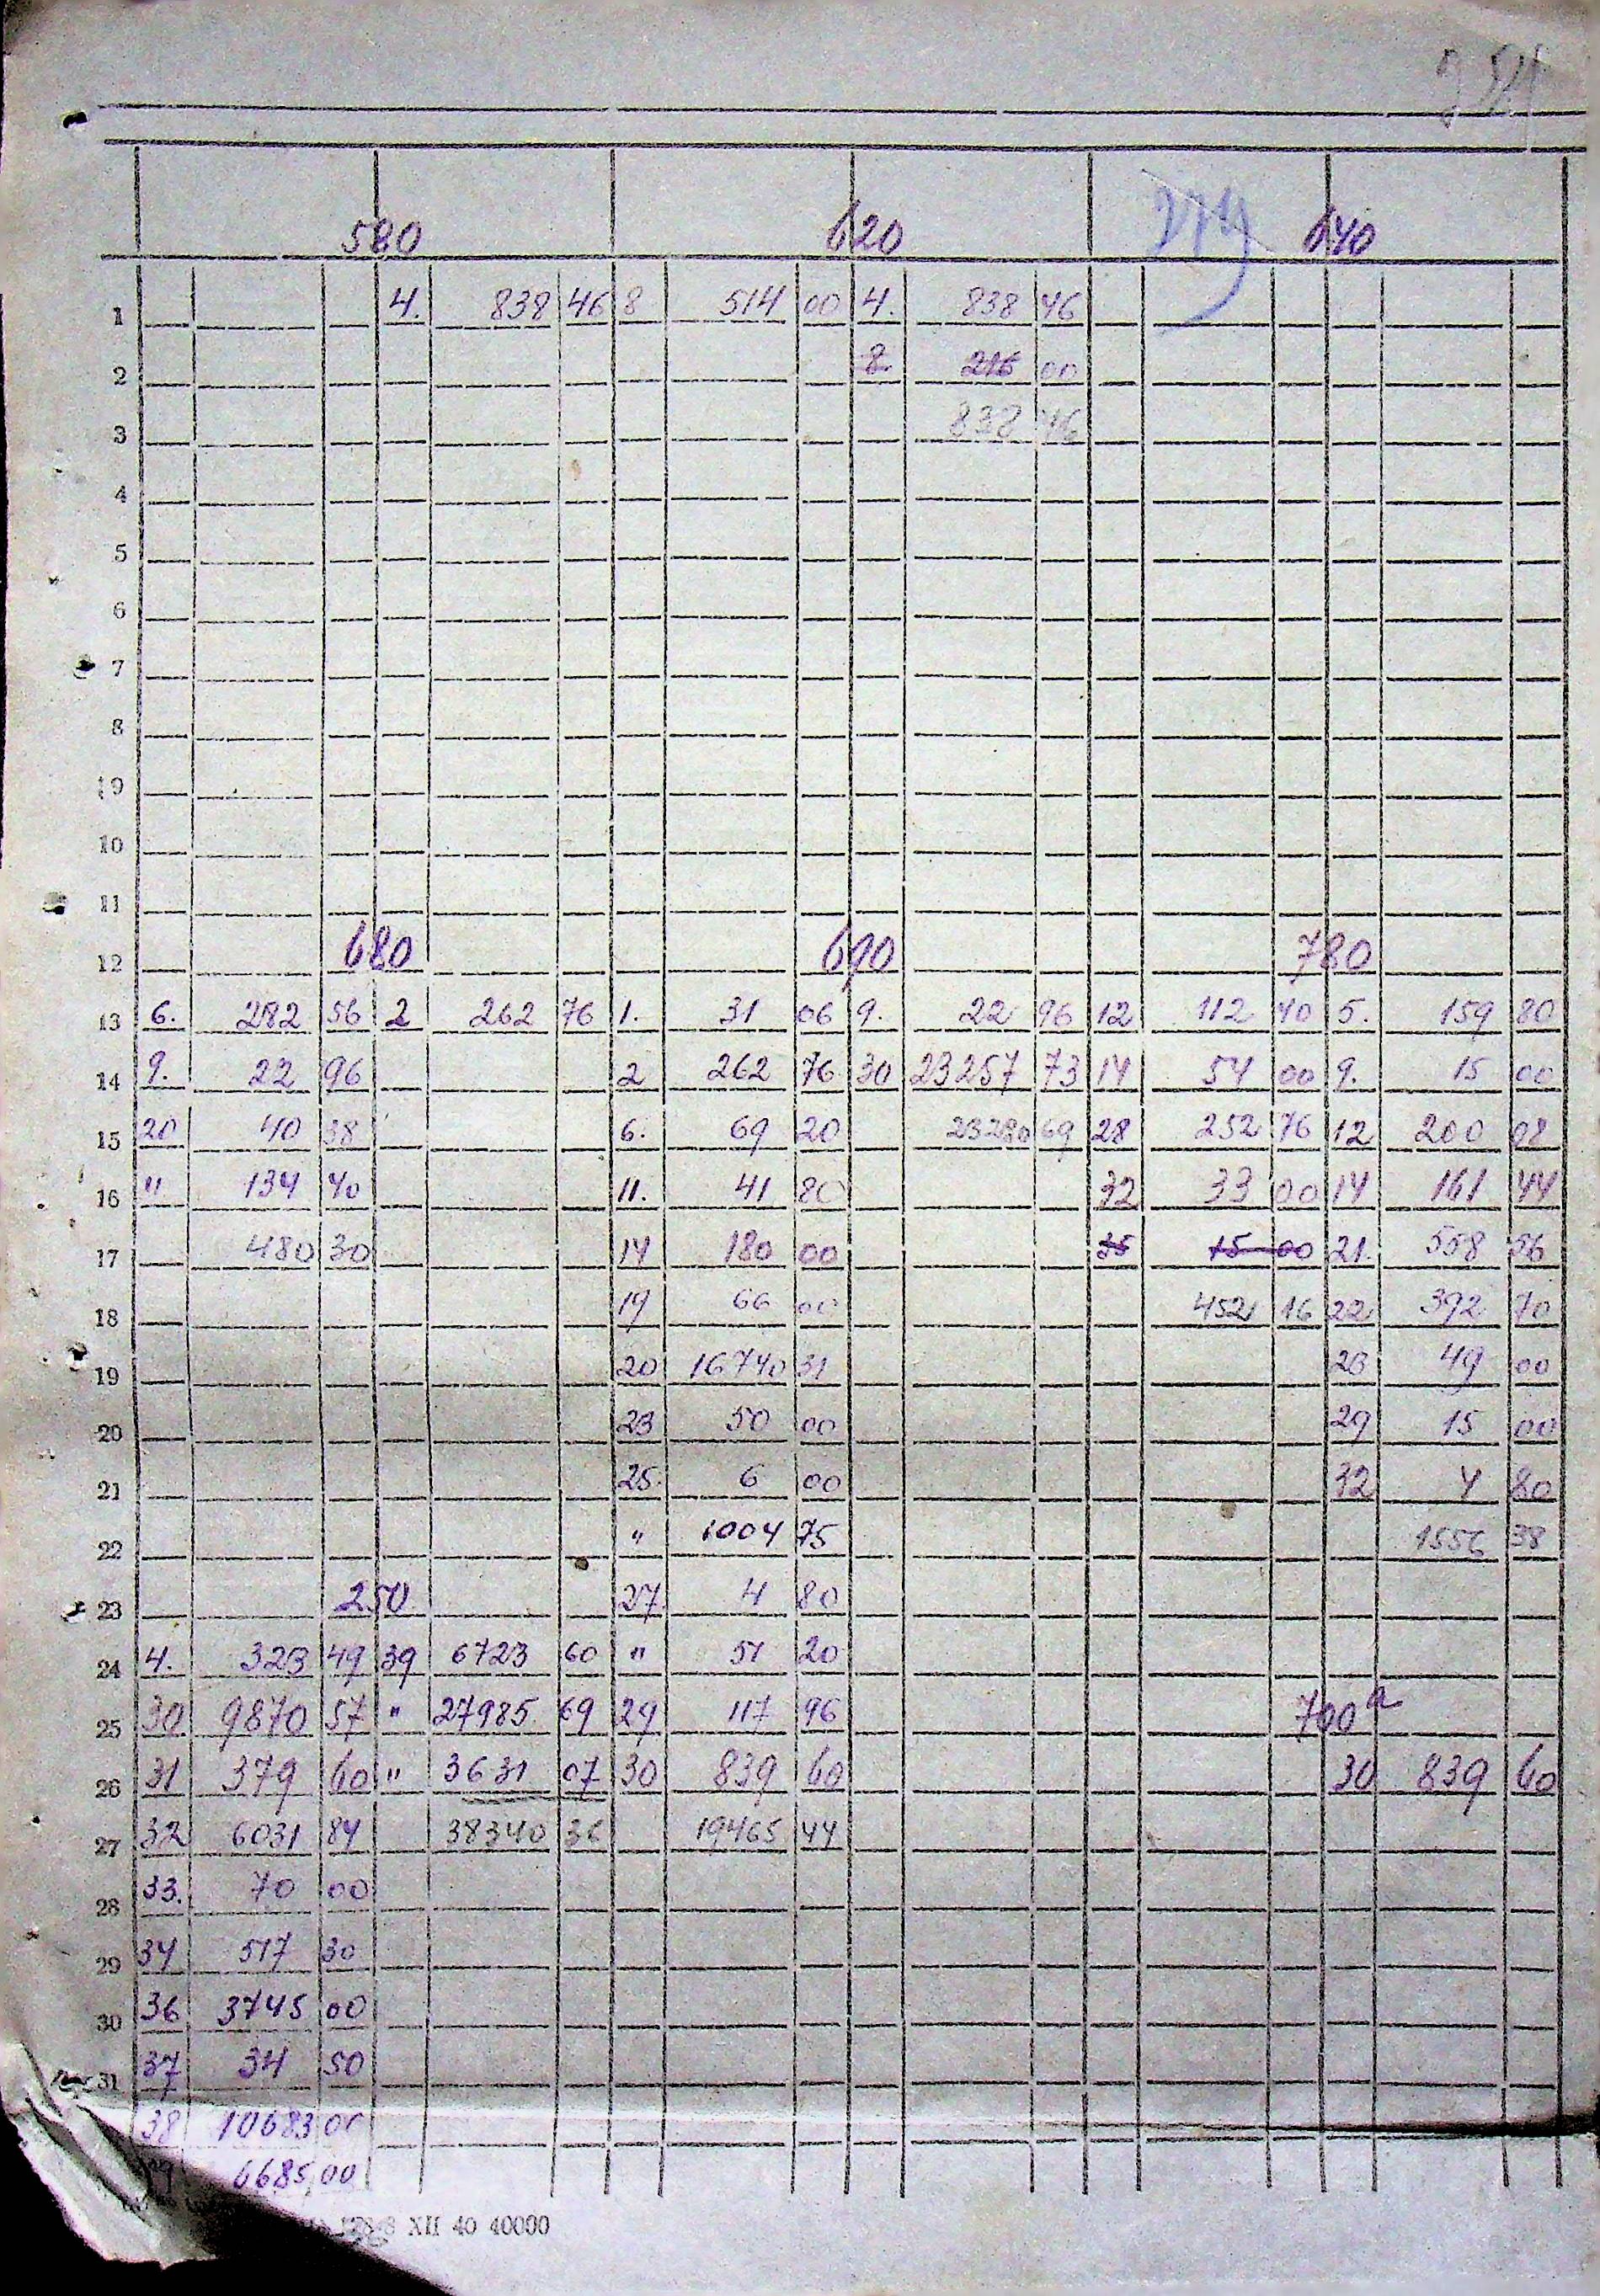 580 620 640
1 4. 838 46 8 514 00 4. 838 46
2 216 00
3 838 46
4
5
6
7
8
9
10
11
12 680 690 780
13 6. 282 56 2 262 76 1. 31 06 9. 22 96 12 112 40 5. 159 80
14 9. 22 96 2 262 76 30 23257 73 14 54 00 9. 15 00
15 20 40 38 6. 69 20 23280 69 28 252 76 12 200 08
16 " 134 40 11. 41 80 32 33 00 14 161 44
17 480 30 14 180 00 35 15 00 21. 558 56
18 19 66 00 452 16 22 392 70
19 20 16740 31 23 49 00
20 23 50 00 29 15 00
21 25. 6 00 32 4 80
22 " 1004 75 1556 38
23 250 27. 4 80
24 4. 323 49 39 6723 60 " 51 20
25 30 9870 57 " 27985 69 29 117 96 700 a
26 31 379 60 " 3631 07 30 839 60 30 839 60
27 32 6031 84 38340 36 19465 44
28 33. 70 00
29 34 517 30
30 36 3745 00
31 37 34 50
38 10683 00
6685 00
XII 40 40000